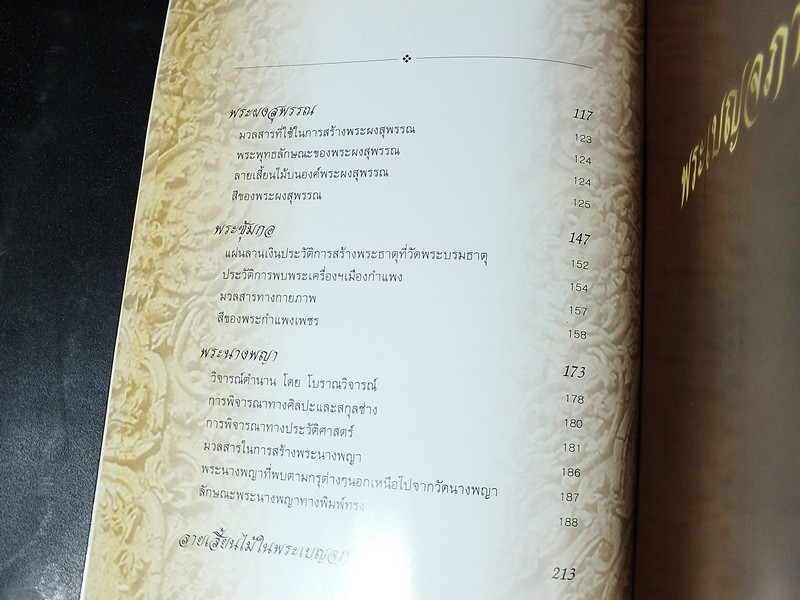 พระผงสุพรรณ 117
มวลสารที่ใช้ในการสร้างพระผงสุพรรณ 123
พระพุทธลักษณะของพระผงสุพรรณ 124
ลายเสี้ยนไม้บนองค์พระผงสุพรรณ 124
สีของพระผงสุพรรณ 125
พระซุ้มกอ 147
แผ่นลานเงินประวัติการสร้างพระธาตุที่วัดพระบรมธาตุ 152
ประวัติการพบพระเครื่องฯเมืองกำแพง 154
มวลสารทางกายภาพ 157
สีของพระกำแพงเพชร 158
พระนางพญา 173
วิจารณ์ตำนาน โดย โบราณวิจารณ์ 178
การพิจารณาทางศิลปะและสกุลช่าง 180
การพิจารณาทางประวัติศาสตร์ 181
มวลสารในการสร้างพระนางพญา 186
พระนางพญาที่พบตามกรุต่างๆนอกเหนือไปจากวัดนางพญา 187
ลักษณะพระนางพญาทางพิมพ์ทรง 188
ลายเสี้ยนไม้ในพระเบญจภ 213
พระเบญจภา